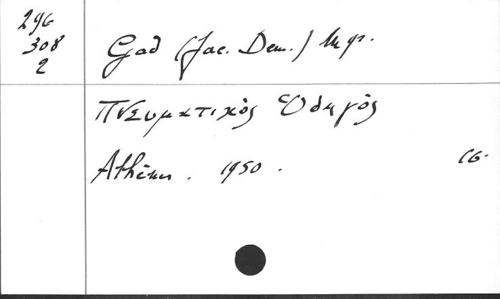 296
308
2
Gad (Jac. Dem.) Mgr.
Πνευματικὸς Ὁδηγὸς
Athènes. 1950.
16.